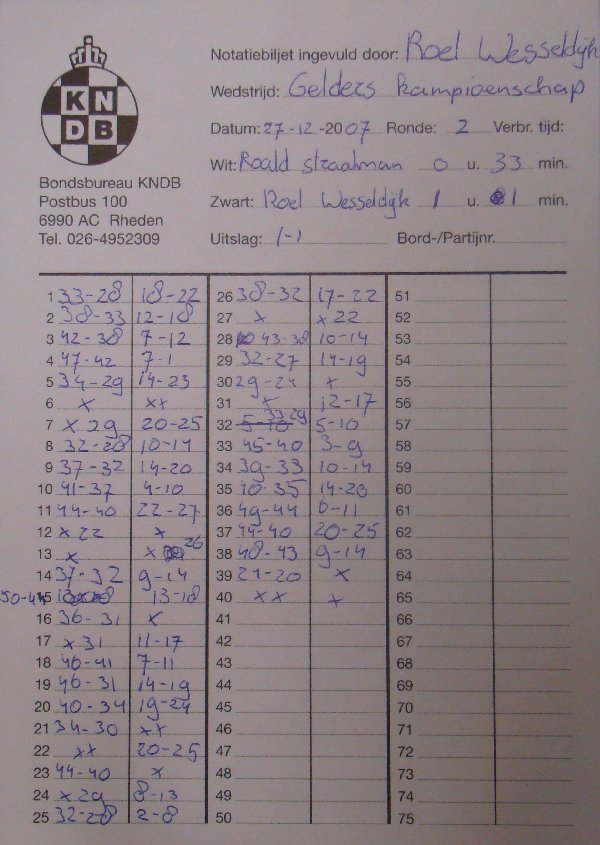 KN
DB
Bondsbureau KNDB
Postbus 100
6990 AC Rheden
Tel. 026-4952309
Notatiebiljet ingevuld door: Roel Wesseldijk
Wedstrijd: Gelders kampioenschap
Datum: 27-12-2007 Ronde: 2 Verbr. tijd:
Wit: Roald straatman 0 u. 33 min.
Zwart: Roel Wesseldijk 1 u. 1 min.
Uitslag: 1-1 Bord-/Partijnr.
1 33-28 18-22 26 38-32 17-22 51
2 38-33 12-18 27 x x 22 52
3 42-38 7-12 28 43-38 10-14 53
4 47-42 7-1 29 32-27 14-19 54
5 34-29 14-23 30 29-24 x 55
6 x xx 31 x 12-17 56
7 x 29 20-25 32 33-29 5-10 57
8 32-28 10-14 33 45-40 3-9 58
9 37-32 14-20 34 39-33 10-14 59
10 41-37 4-10 35 40-35 14-20 60
11 44-40 22-27 36 49-44 6-11 61
12 x 22 x 37 44-40 20-25 62
13 x x 26 38 48-43 9-14 63
14 37-32 9-14 39 24-20 x 64
15 50-44 13-18 40 xx x 65
16 36-31 x 41 66
17 x 31 11-17 42 67
18 46-41 7-11 43 68
19 46-31 14-19 44 69
20 40-34 19-24 45 70
21 34-30 xx 46 71
22 xx 20-25 47 72
23 44-40 x 48 73
24 x 29 8-13 49 74
25 32-28 2-8 50 75